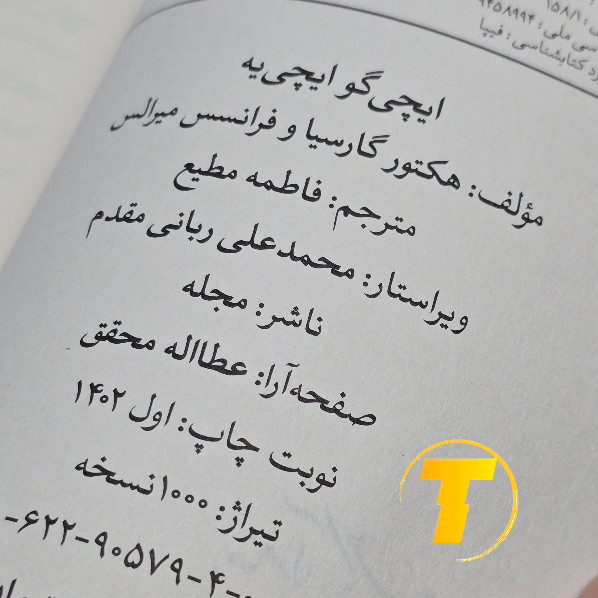 ۱۵۸/۱
سی ملی: ۹۴۵۸۹۹۴
کتابشناسی: فیپا
ایچی‌گو ایچی‌یه
مؤلف: هکتور گارسیا و فرانسس میرالس
مترجم: فاطمه مطیع
ویراستار: محمدعلی ربانی مقدم
ناشر: مجله
صفحه‌آرا: عطااله محقق
نوبت چاپ: اول ۱۴۰۲
تیراژ: ۱۰۰۰ نسخه
-۶۲۲-۹۰۵۷۹-۴-
T